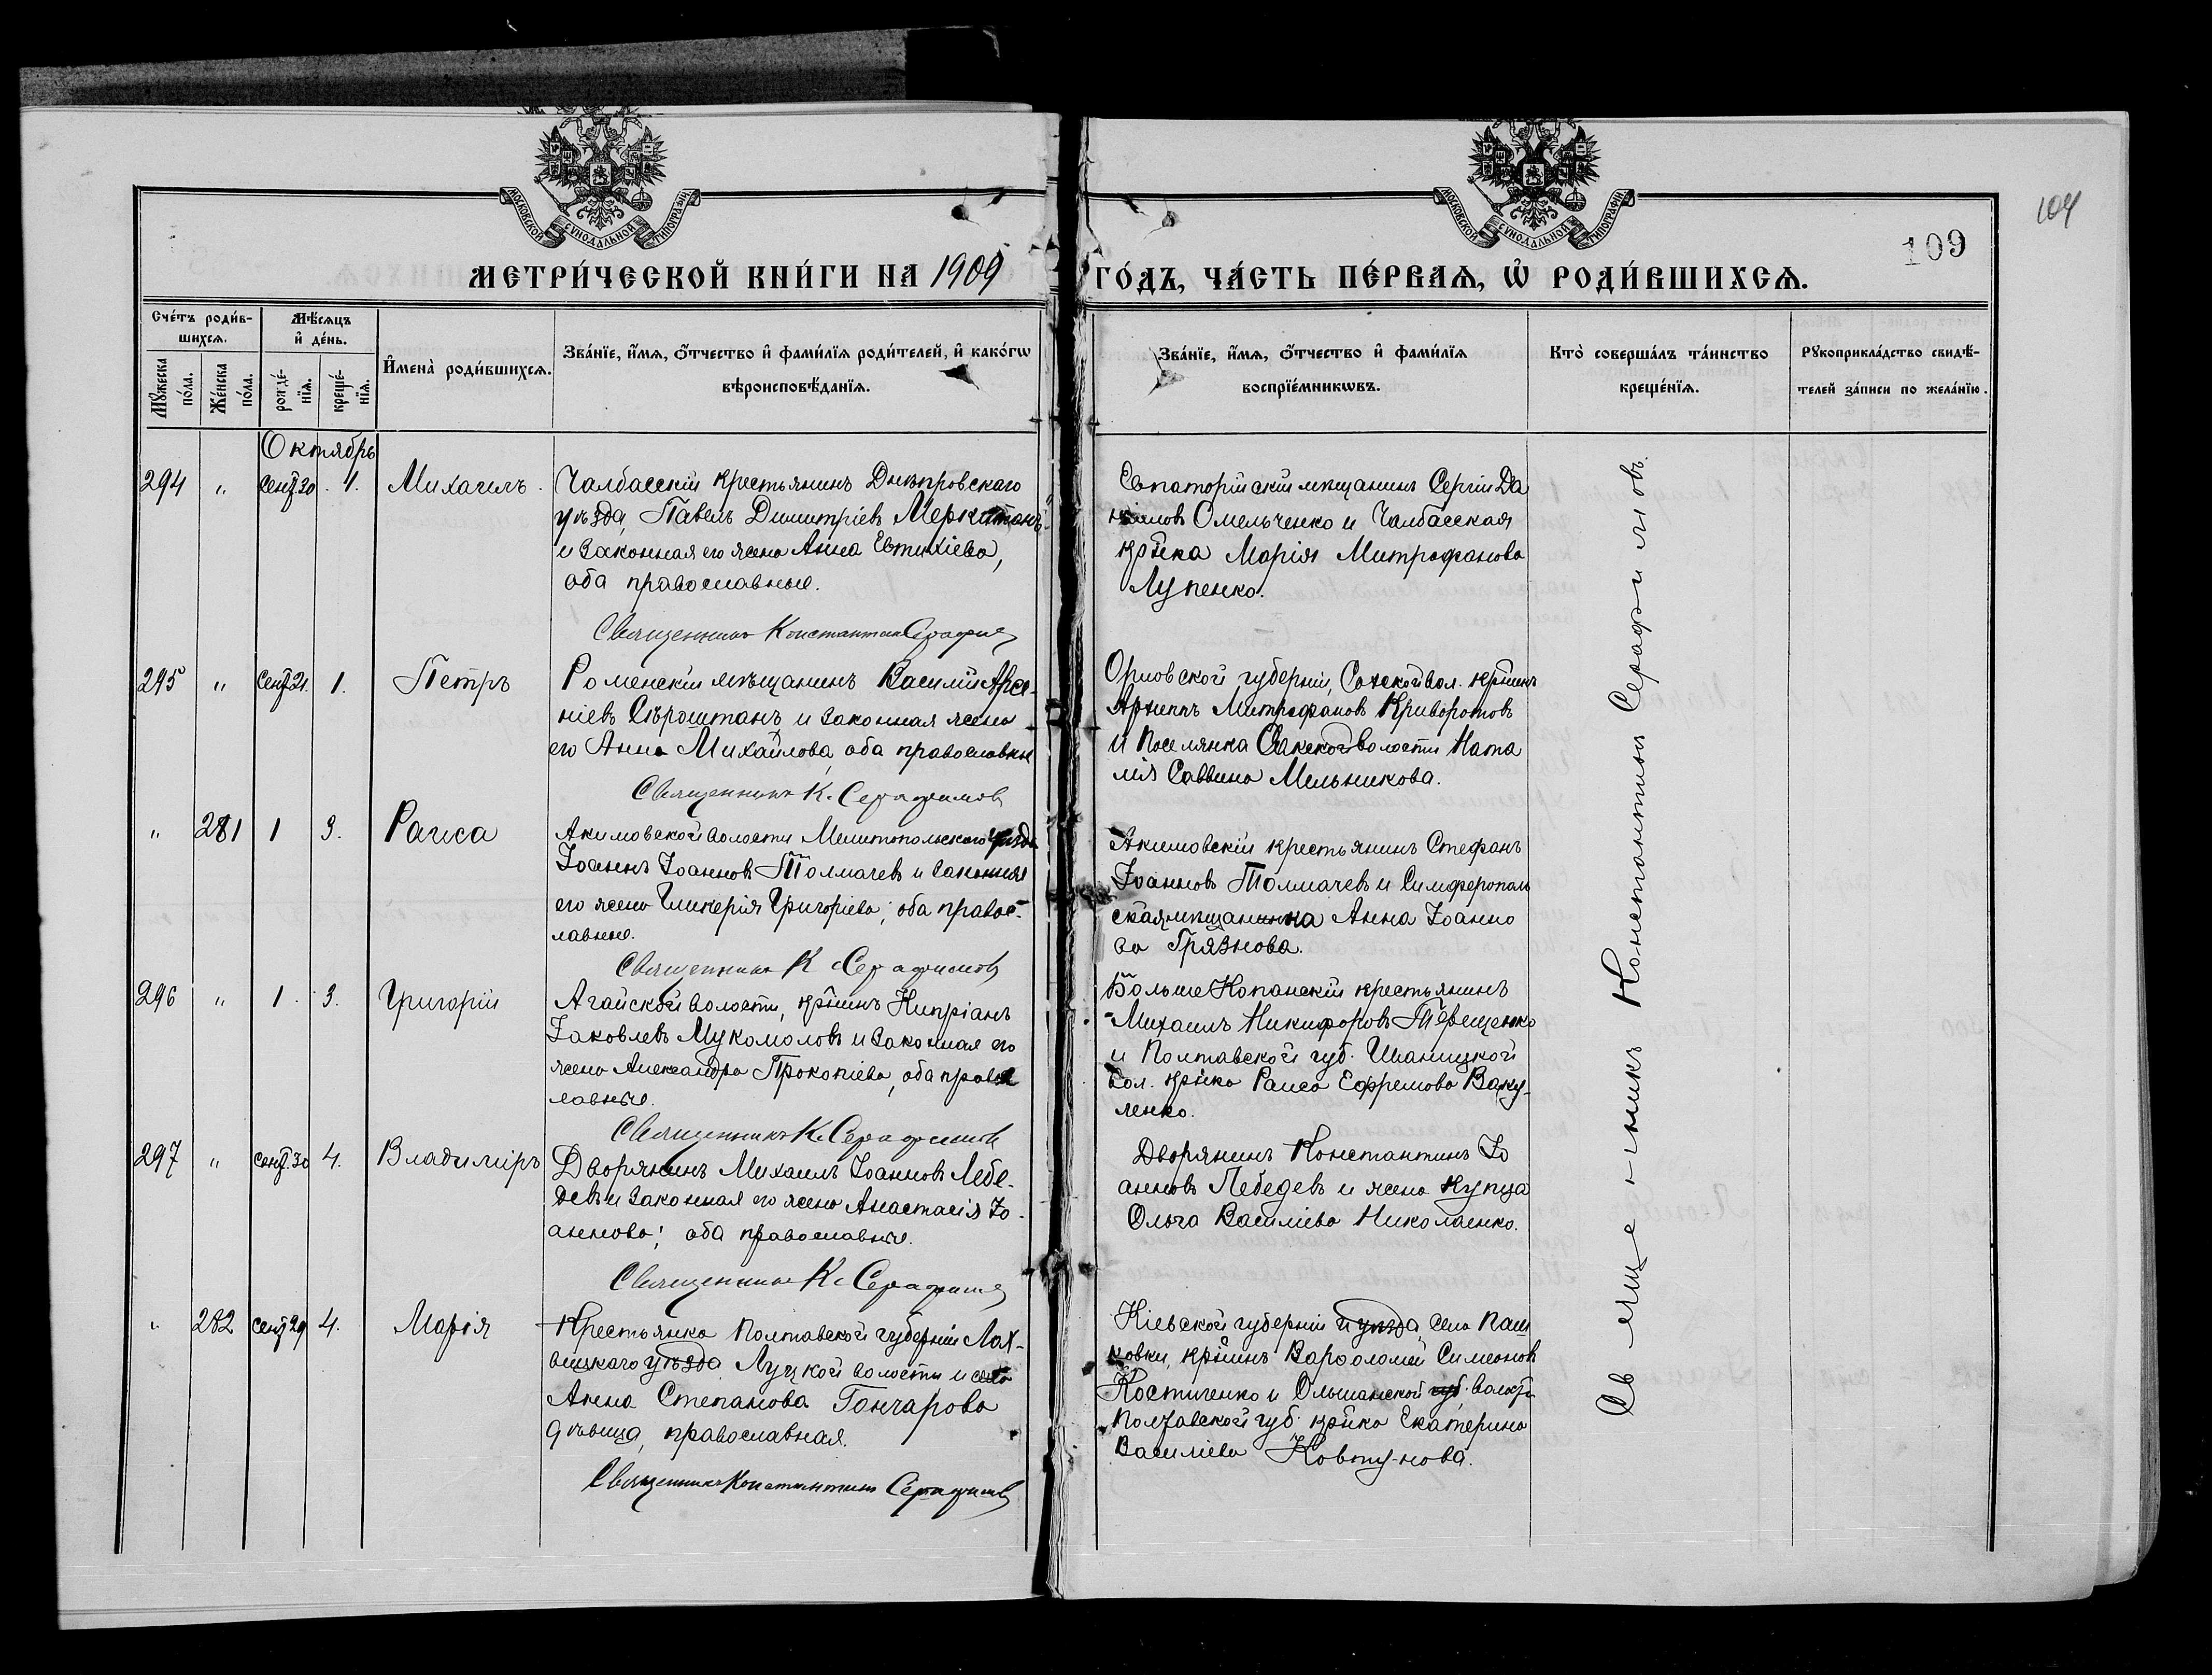 104
109
МОСКОВСКОЙ СУНОДАЛЬНОЙ ТИПОГРАФІИ
МОСКОВСКОЙ СУНОДАЛЬНОЙ ТИПОГРАФІИ
МЕТРИ́ЧЕСКОЙ КНИ́ГИ НА 1909
ГО́ДЪ, ЧА́СТЬ ПЕ́РВАѦ, Ѡ҆ РОДИ́ВШИХСѦ.
Сче́тъ роди́в-
шихсѧ.
Мѣ́сѧцъ
и҆ де́нь.
И҆мена̀ роди́вшихсѧ.
Зва́нїе, и҆́мѧ, ѻ҆́тчество и҆ фами́лїѧ роди́телей, и҆ како́гѡ
вѣроисповѣ́данїѧ.
Мꙋ́жеска
по́ла.
Же́нска
по́ла.
рожде́-
нїѧ.
креще́-
нїѧ.
Зва́нїе, и҆́мѧ, ѻ҆́тчество и҆ фами́лїѧ
воспрїе́мникѡвъ.
Кто̀ соверша́лъ та́инство
креще́нїѧ.
Рꙋкоприкла́дство свидѣ́-
телей за́писи по жела́нїю.
Октябрь
294 " Сент. 30 1. Михаилъ.
Чалбасскій крестьянинъ Днѣпровскаго
уѣзда, Павелъ Димитріевъ
и законная его жена Анна Евтихіева,
оба православные.
Священникъ Константинъ Серафимовъ
Евпаторійскій мѣщанинъ Сергій Да
ніиловъ Омельченко и Чалбасская
кр‑нка Марія Митрофанова
Лупенко.
295 " Сент. 21. 1. Петръ
Роменскій мѣщанинъ Василій Арсе-
ніевъ Сѣроштанъ и законная жена
его Анна Михайлова, оба православные
Священникъ К. Серафимовъ
Орловской губерніи, вол. кр‑нинъ
Архиппъ Митрофановъ Криворотовъ
и поселянка Сакской волости Ната
лія Саввина Мельникова.
" 281 1 3. Раиса
Акимовской волости Мелитопольскаго уѣзда
Іоаннъ Іоанновъ Толмачевъ и законная
его жена Гликерія Григоріева; оба правос-
лавные.
Священникъ К. Серафимовъ
Акимовскій крестьянинъ Стефанъ
Іоанновъ Толмачевъ и Симферополь
ская мѣщанка Анна Іоанно
ва Грязнова.
296 " 1. 3. Григорій
Агайской волости, кр‑нинъ Кипріанъ
Іаковлевъ Мукомоловъ и законная его
жена Александра Прокопіева, оба правос
лавные.
Священникъ К. Серафимовъ
Больше Копанскій крестьянинъ
Михаилъ Никифоровъ Терещенко
и Полтавской губ. Иваницкой
вол. кр‑нка Раиса Ефремова Ваку-
ленко.
297 " Сент. 30 4. Владиміръ
Дворянинъ Михаилъ Іоанновъ Лебе-
девъ и законная его жена Анастасія Іо-
аннова; оба православные.
Священникъ К. Серафимовъ
Дворянинъ Константинъ Іо
анновъ Лебедевъ и жена купца
Ольга Василіева Николаенко.
" 282 Сент. 29 4. Марія
Крестьянка Полтавской губерніи Лох-
вицкаго уѣзда Луцкой волости и села
Анна Степанова Гончарова
дѣвица, православная.
Священникъ Константинъ Серафимовъ
Кіевской губерніи и уѣзда, села Паш
ковки, кр‑нинъ Варѳоломей Симеоновъ
Костиченко и Ольшанской губ. волости
Полтавской губ. кр‑нка Екатерина
Василіева Ковтунова.
Священникъ Константинъ Серафимовъ.